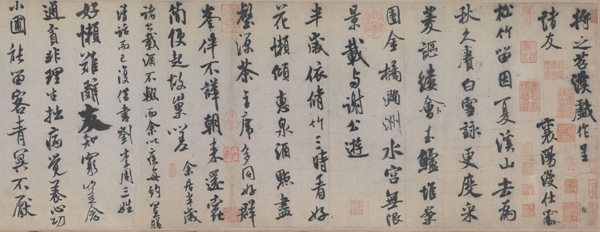 將之苕溪戲作呈
諸友
襄陽漫仕黻
松竹留因夏溪山去為
秋久賡白雪詠更度采
菱謳縷會玉鱸堆案
團金橘滿洲水宮無限
景載與謝公遊
半歲依脩竹三時看好
花懶傾惠泉酒點盡
壑源茶主席多同好群
峯伴不譁朝來還蠹
簡便起故巢嗟
余居半歲
諸公載酒不輟而余以疾每約置膳
清話而已復借書劉李周三姓
好懶難辭友知窮豈念
通貧非理生拙病覺養心功
小圃能留客青冥不厭